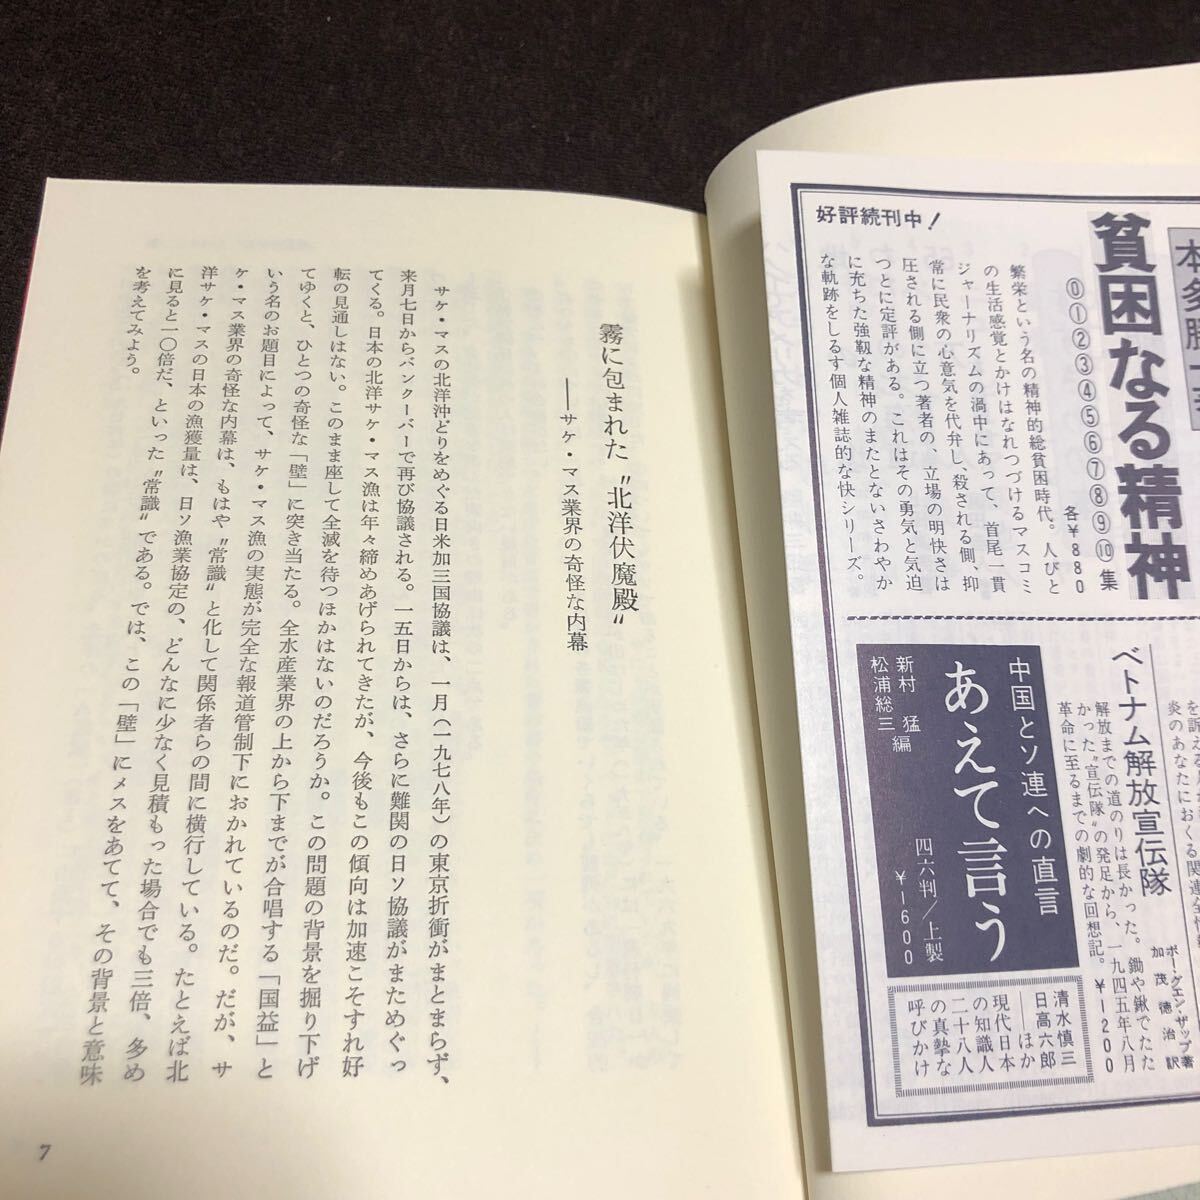 好評続刊中!
本多勝一
貧困なる精神
⓪①②③④⑤⑥⑦⑧⑨⑩集
各￥880
繁栄という名の精神的総貧困時代。人びと
の生活感覚とかけはなれつづけるマスコミ
ジャーナリズムの渦中にあって、首尾一貫
常に民衆の心意気を代弁し、殺される側、抑
圧される側に立つ著者の、立場の明快さは
つとに定評がある。これはその勇気と気迫
に充ちた強靱な精神のまたとないさわやか
な軌跡をしるす個人雑誌的な快シリーズ。
炎のあなたにおくる関連全
ベトナム解放宣伝隊
ボー・グエン・ザップ著
加茂徳治訳
解放までの道のりは長かった。鋤や鍬でたた
かった〝宣伝隊〟の発足から、一九四五年八月
革命に至るまでの劇的な回想記。￥1200
中国とソ連への直言
あえて言う
四六判/上製
￥1600
新村 猛
松浦総三 編
清水慎三
日高六郎
――ほか
現代日本
の知識人
二十八人
の真摯な
呼びかけ
霧に包まれた〝北洋伏魔殿〟
――サケ・マス業界の奇怪な内幕
サケ・マスの北洋沖どりをめぐる日米加三国協議は、一月(一九七八年)の東京折衝がまとまらず、
来月七日からバンクーバーで再び協議される。一五日からは、さらに難関の日ソ協議がまためぐっ
てくる。日本の北洋サケ・マス漁は年々締めあげられてきたが、今後もこの傾向は加速こそすれ好
転の見通しはない。このまま座して全滅を待つほかはないのだろうか。この問題の背景を掘り下げ
てゆくと、ひとつの奇怪な「壁」に突き当たる。全水産業界の上から下までが合唱する「国益」と
いう名のお題目によって、サケ・マス漁の実態が完全な報道管制下におかれているのだ。だが、サ
ケ・マス業界の奇怪な内幕は、もはや〝常識〟と化して関係者らの間に横行している。たとえば北
洋サケ・マスの日本の漁獲量は、日ソ漁業協定の、どんなに少なく見積もった場合でも三倍、多め
に見ると一〇倍だ、といった〝常識〟である。では、この「壁」にメスをあてて、その背景と意味
を考えてみよう。
7